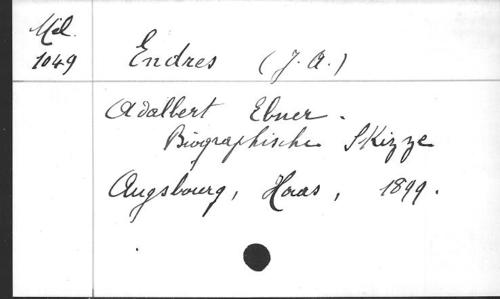 Mél.
1049
Endres (J. A.)
Adalbert Ebner.
Biographische Skizze
Augsbourg, Haas, 1899.